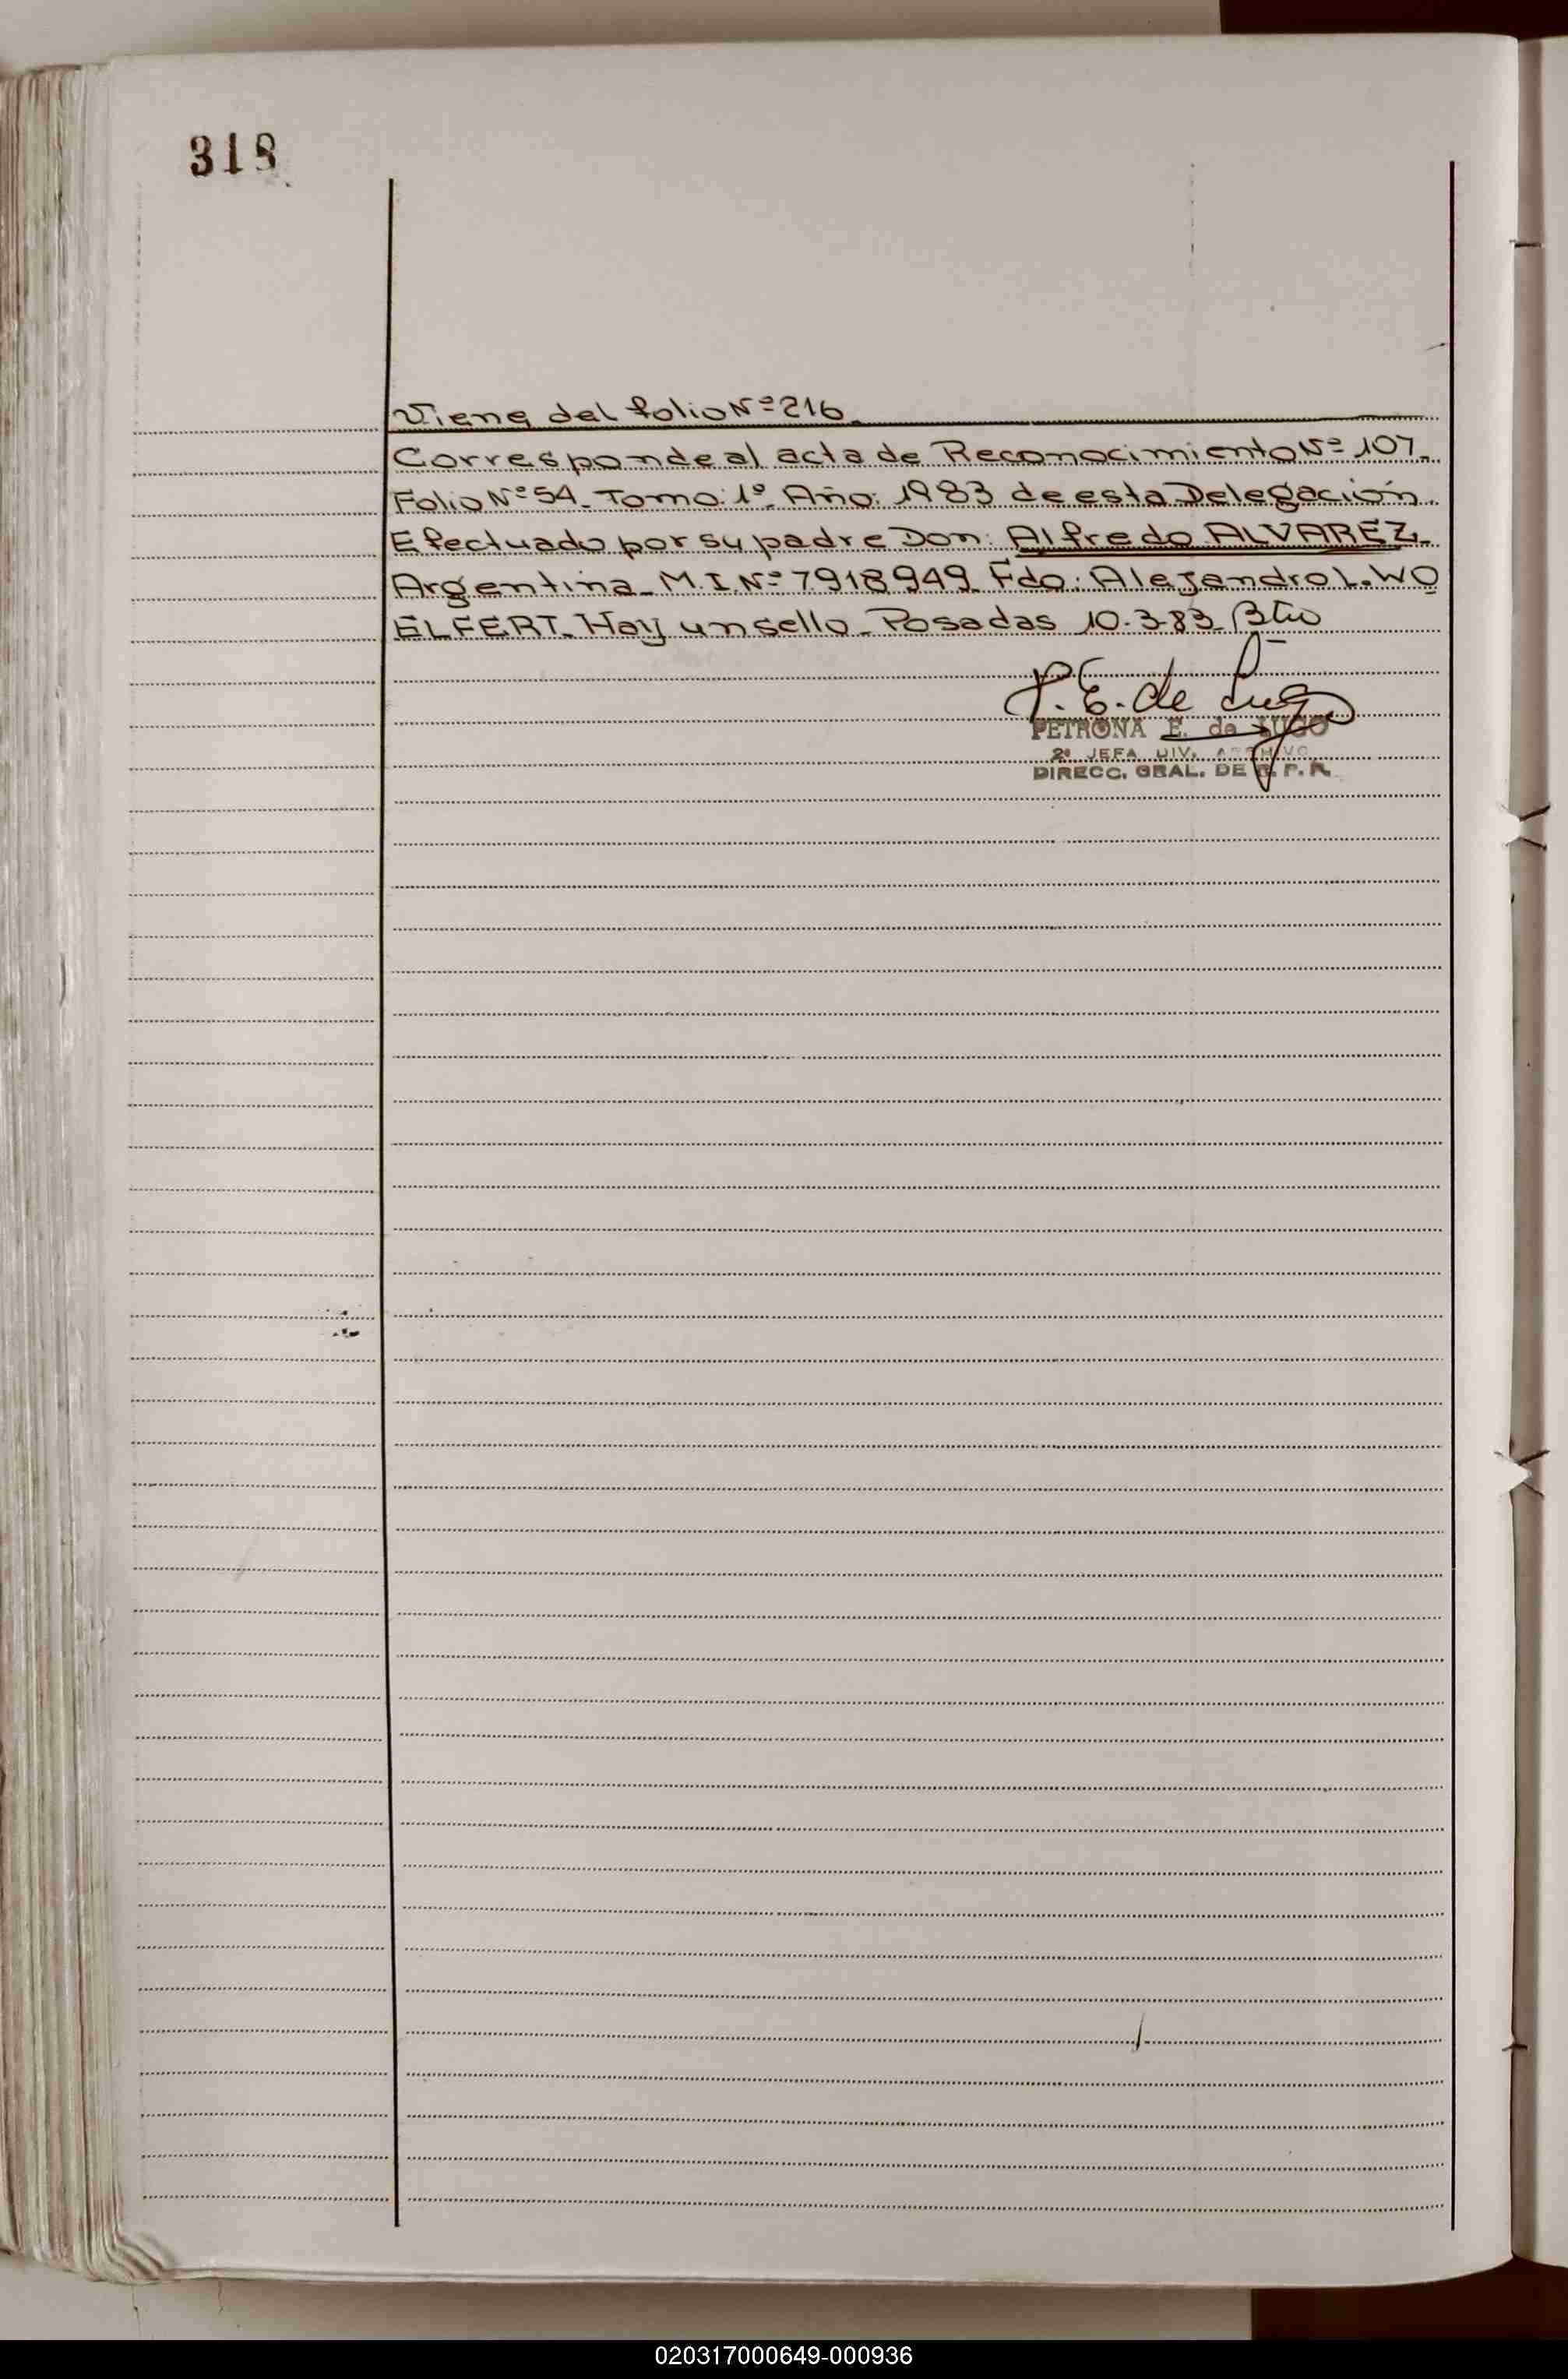 318
Viene del folio Nº 216.
Corresponde al acta de Reconocimiento Nº 107.
Folio Nº 54_ Tomo: 1º_ Año: 1983 de esta Delegación.
Efectuado por su padre Don: Alfredo ALVAREZ._
Argentina_ M.I.Nº 7918949_ Fdo.: Alejandro L. WO
ELFERT_ Hay un sello_ Posadas 10-3-83_
P. E. de Lugo
PETRONA E. de LUGO
2ª JEFA DIV. ARCHIVO
DIRECC. GRAL. DE R. P. P.
020317000649-000936